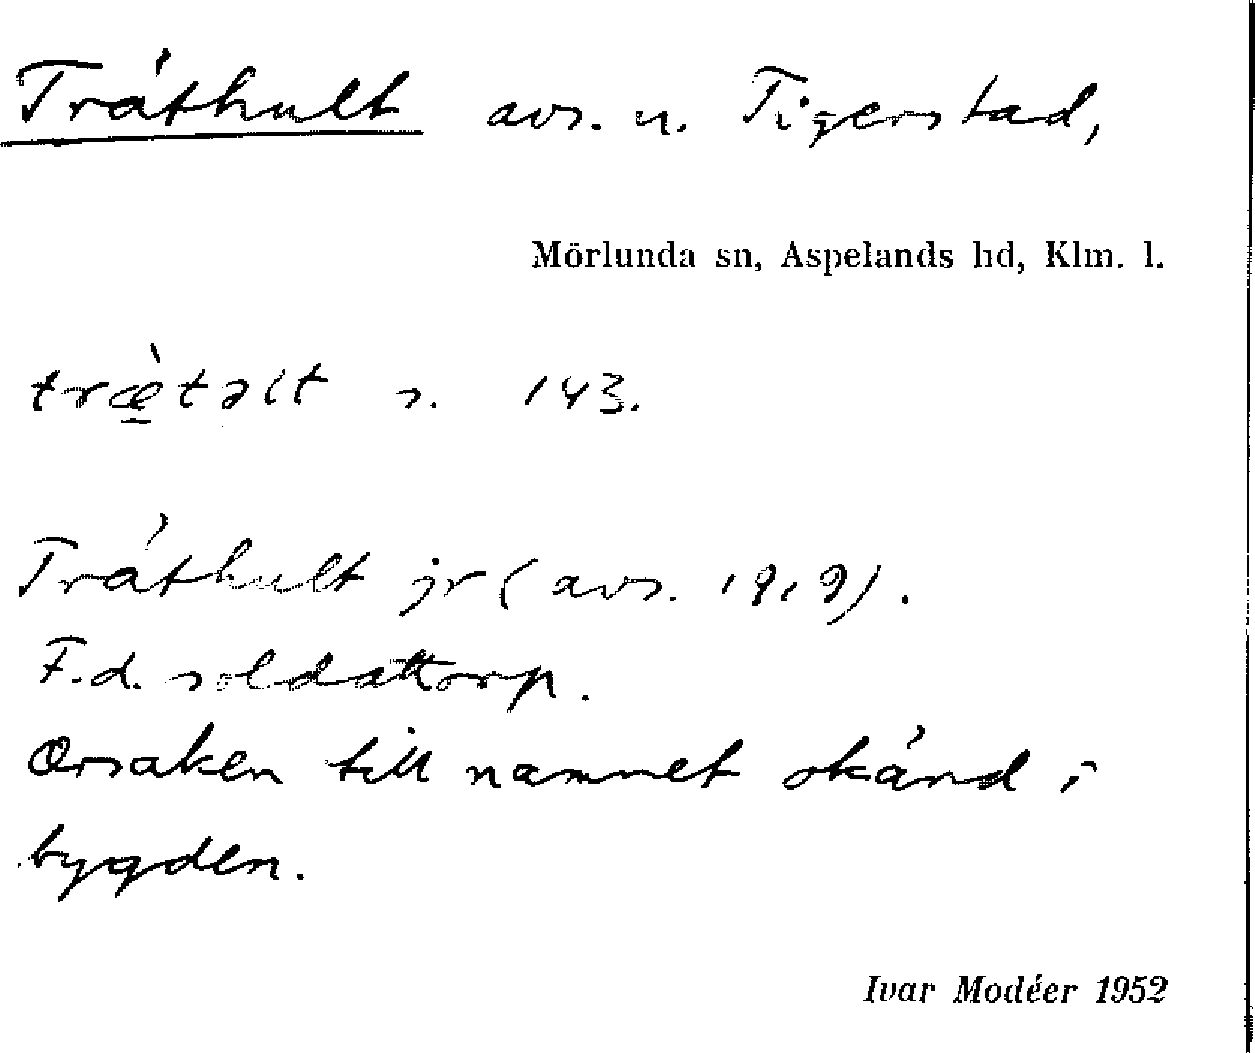 Träthult avs. u. Tigerstad,
Mörlunda sn, Aspelands hd, Klm. l.
træ̀təlt s. 143.
Träthult jr (avs. 1919).
F.d. soldattorp.
Orsaken till namnet okänd i
bygden.
Ivar Modéer 1952